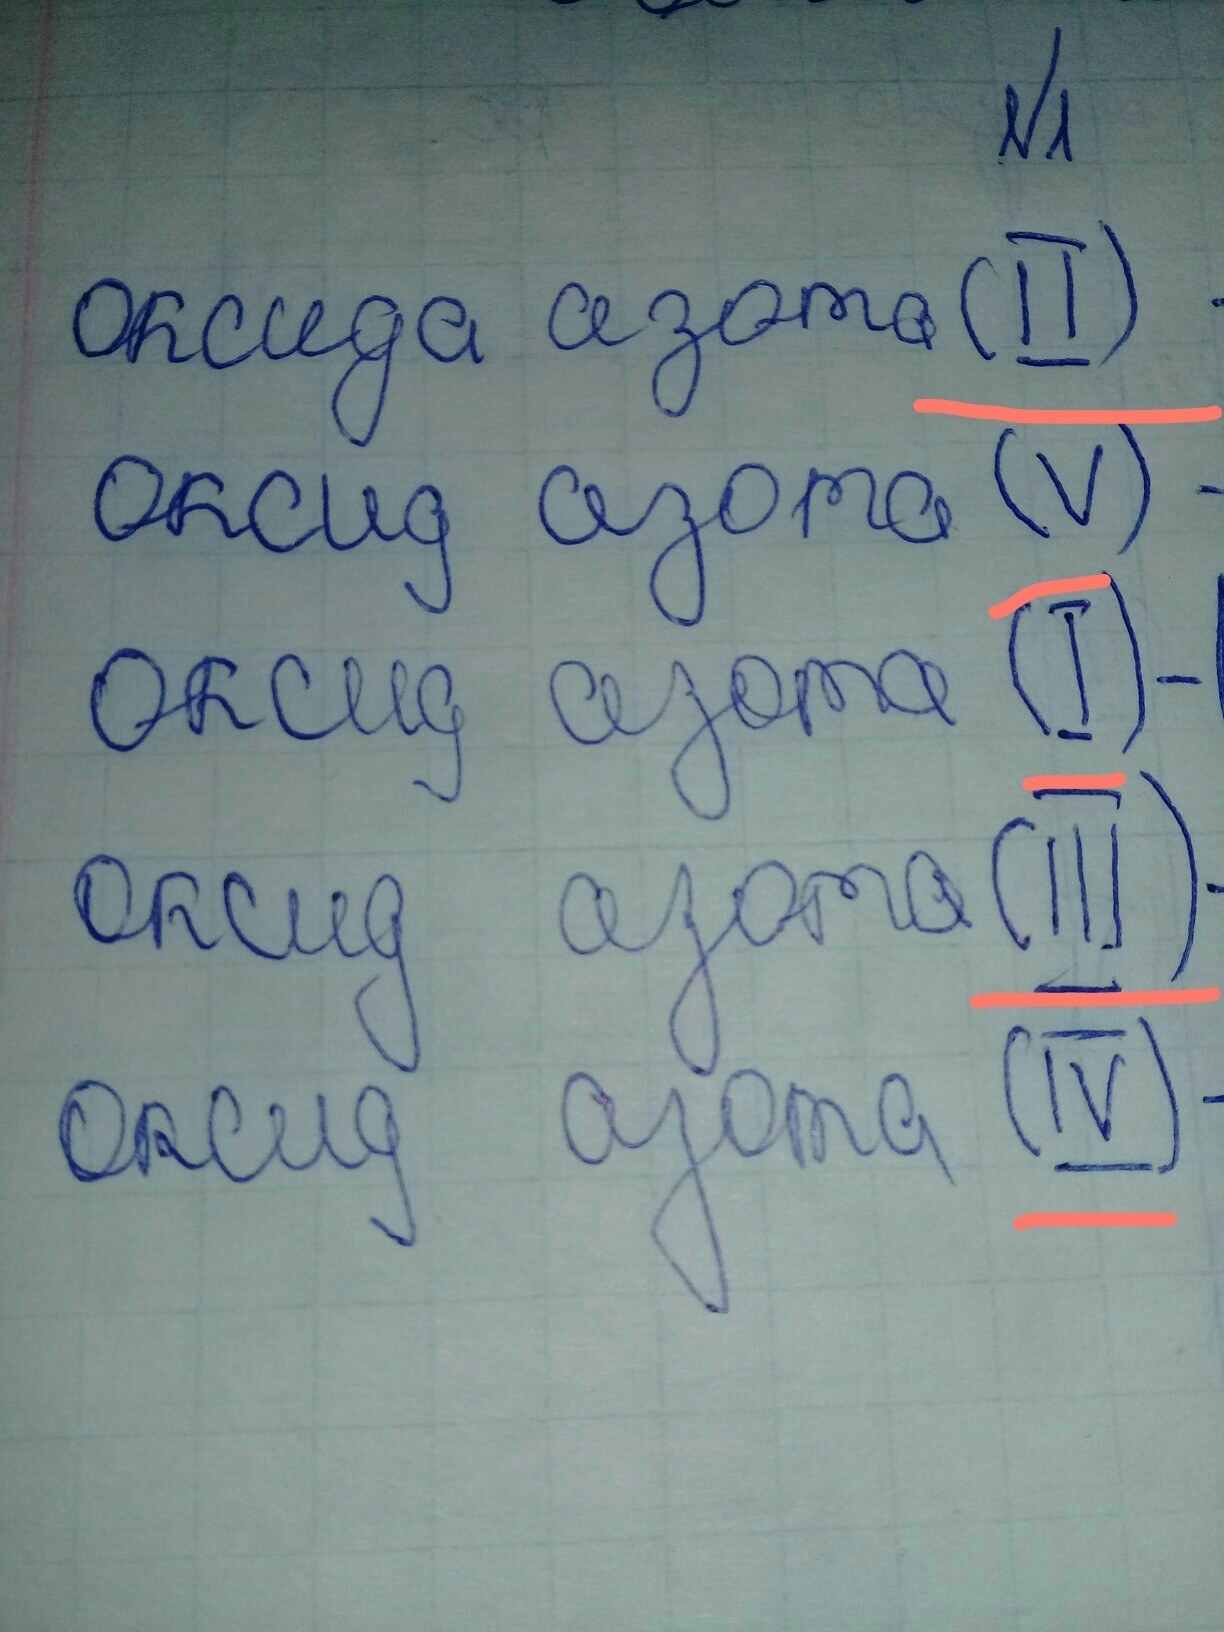 №1
оксида азота (II) -
оксид азота (V) -
оксид азота (I) -
оксид азота (III) -
оксид азота (IV) -